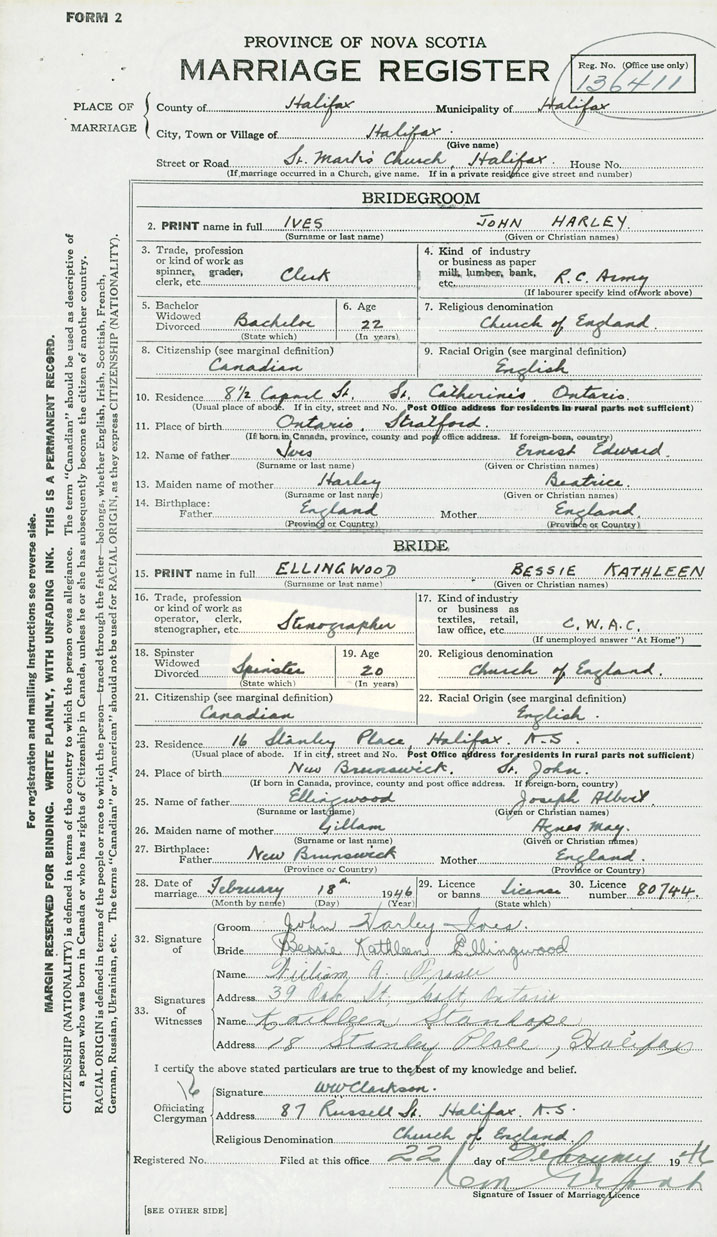 FORM 2
PROVINCE OF NOVA SCOTIA
MARRIAGE REGISTER
Reg. No. (Office use only)
136411
PLACE OF MARRIAGE
County of Halifax Municipality of Halifax
City, Town or Village of Halifax.
(Give name)
Street or Road St. Mark's Church, Halifax. House No.
(If marriage occurred in a Church, give name. If in a private residence give street and number)
BRIDEGROOM
2. PRINT name in full IVES JOHN HARLEY.
(Surname or last name) (Given or Christian names)
3. Trade, profession or kind of work as spinner, grader, clerk, etc. Clerk
4. Kind of industry or business as paper milk, lumber, bank, etc. R.C. Army
(If labourer specify kind of work above)
5. Bachelor Widowed Divorced Bachelor
(State which)
6. Age 22
(In years)
7. Religious denomination
Church of England.
8. Citizenship (see marginal definition)
Canadian
9. Racial Origin (see marginal definition)
English
10. Residence 8½ St. St. Catherines, Ontario.
(Usual place of abode. If in city, street and No. Post Office address for residents in rural parts not sufficient)
11. Place of birth Ontario, Stratford.
(If born in Canada, province, county and post office address. If foreign-born, country)
12. Name of father Ives Ernest Edward.
(Surname or last name) (Given or Christian names)
13. Maiden name of mother Harley Beatrice.
(Surname or last name) (Given or Christian names)
14. Birthplace: Father England Mother England.
(Province or Country) (Province or Country)
BRIDE
15. PRINT name in full ELLINGWOOD BESSIE KATHLEEN
(Surname or last name) (Given or Christian names)
16. Trade, profession or kind of work as operator, clerk, stenographer, etc. Stenographer
17. Kind of industry or business as textiles, retail, law office, etc. C.W.A.C.
(If unemployed answer "At Home")
18. Spinster Widowed Divorced Spinster
(State which)
19. Age 20
(In years)
20. Religious denomination
Church of England.
21. Citizenship (see marginal definition)
Canadian
22. Racial Origin (see marginal definition)
English.
23. Residence 16 Stanley Place, Halifax N.S.
(Usual place of abode. If in city, street and No. Post Office address for residents in rural parts not sufficient)
24. Place of birth New Brunswick. St. John.
(If born in Canada, province, county and post office address. If foreign-born, country)
25. Name of father Ellingwood Joseph Albert.
(Surname or last name) (Given or Christian names)
26. Maiden name of mother Gillam Agnes May.
(Surname or last name) (Given or Christian names)
27. Birthplace: Father New Brunswick Mother England.
(Province or Country) (Province or Country)
28. Date of marriage February 18th 1946
(Month by name) (Day) (Year)
29. Licence or banns License
(State which)
30. Licence number 80744.
32. Signature of
Groom John Harley Ives.
Bride Bessie Kathleen Ellingwood
33. Signatures of Witnesses
Name William A. Fraser
Address 39 Oak St. Galt, Ontario
Name Kathleen Stanhope
Address 18 Stanley Place, Halifax
I certify the above stated particulars are true to the best of my knowledge and belief.
Officiating Clergyman
Signature WW Clarkson.
Address 87 Russell St. Halifax. N.S.
Religious Denomination Church of England.
Registered No. Filed at this office 22 day of February 1946
Signature of Issuer of Marriage Licence
[SEE OTHER SIDE]
For registration and mailing instructions see reverse side.
MARGIN RESERVED FOR BINDING. WRITE PLAINLY, WITH UNFADING INK. THIS IS A PERMANENT RECORD.
CITIZENSHIP (NATIONALITY) is defined in terms of the country to which the person owes allegiance. The term "Canadian" should be used as descriptive of
a person who was born in Canada or who has rights of Citizenship in Canada, unless he or she has subsequently become the citizen of another country.
RACIAL ORIGIN is defined in terms of the people or race to which the person—traced through the father—belongs, whether English, Irish, Scottish, French,
German, Russian, Ukrainian, etc. The terms "Canadian" or "American" should not be used for RACIAL ORIGIN, as they express CITIZENSHIP (NATIONALITY).